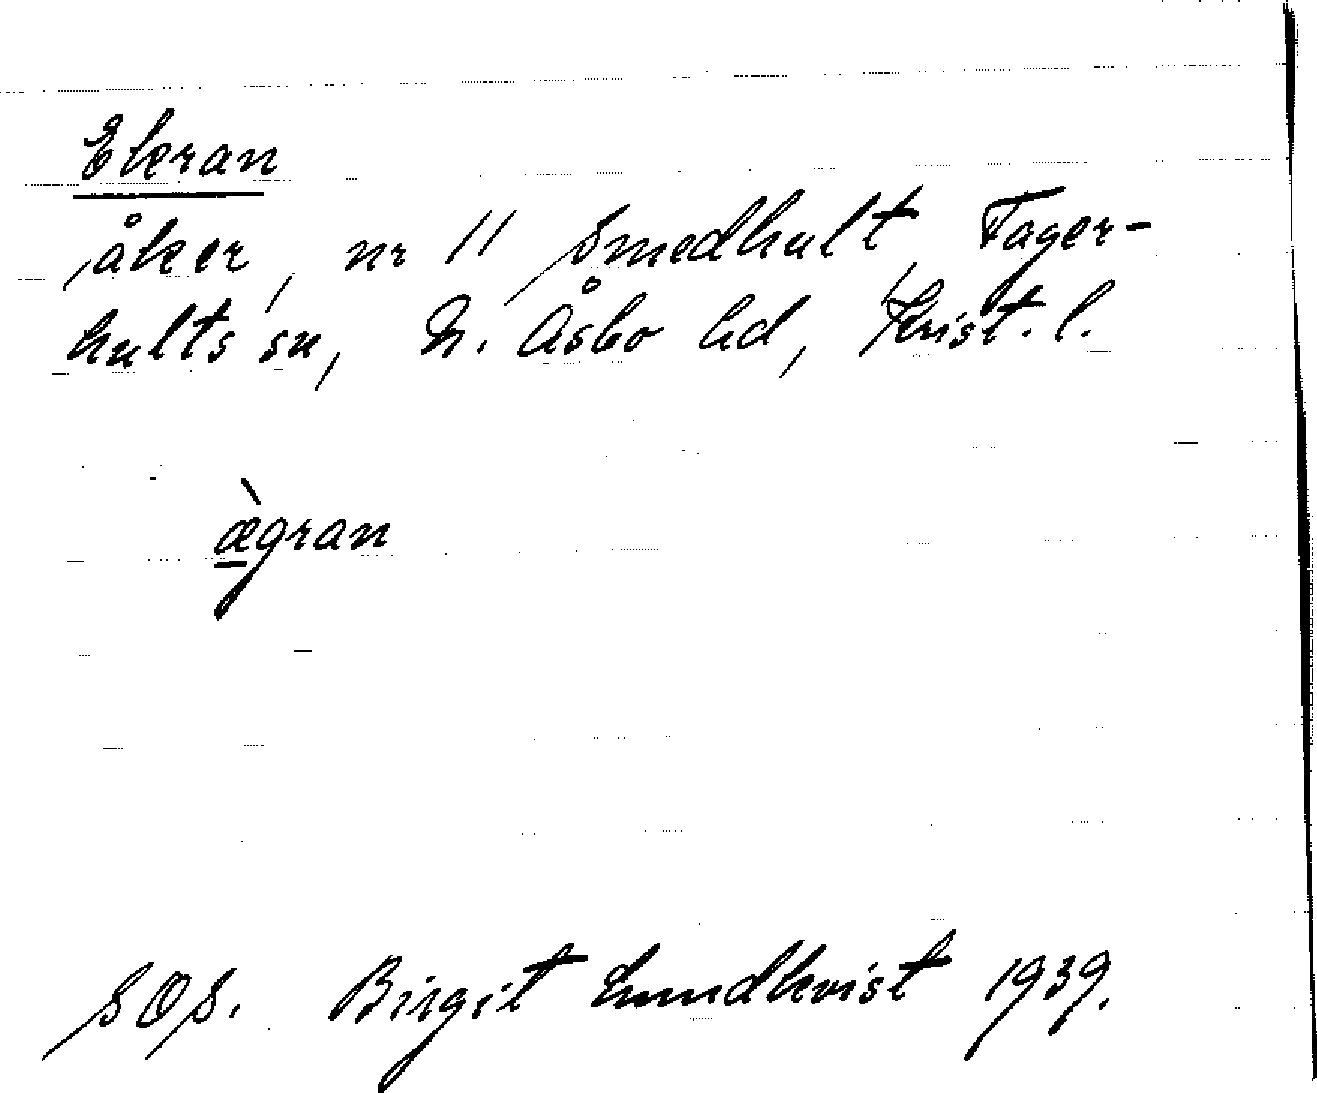 Ekran
åker, nr 11 Smedhult, Fager-
hults sn, N. Åsbo hd, Krist. l.
æ̀gran
SOS. Birgit Lundkvist 1939.